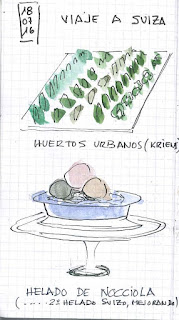 18
07
16
VIAJE A SUIZA
HUERTOS URBANOS (KRIEN)
HELADO DE NOCCIOLA
(.....2º HELADO SUIZO, MEJORANDO)